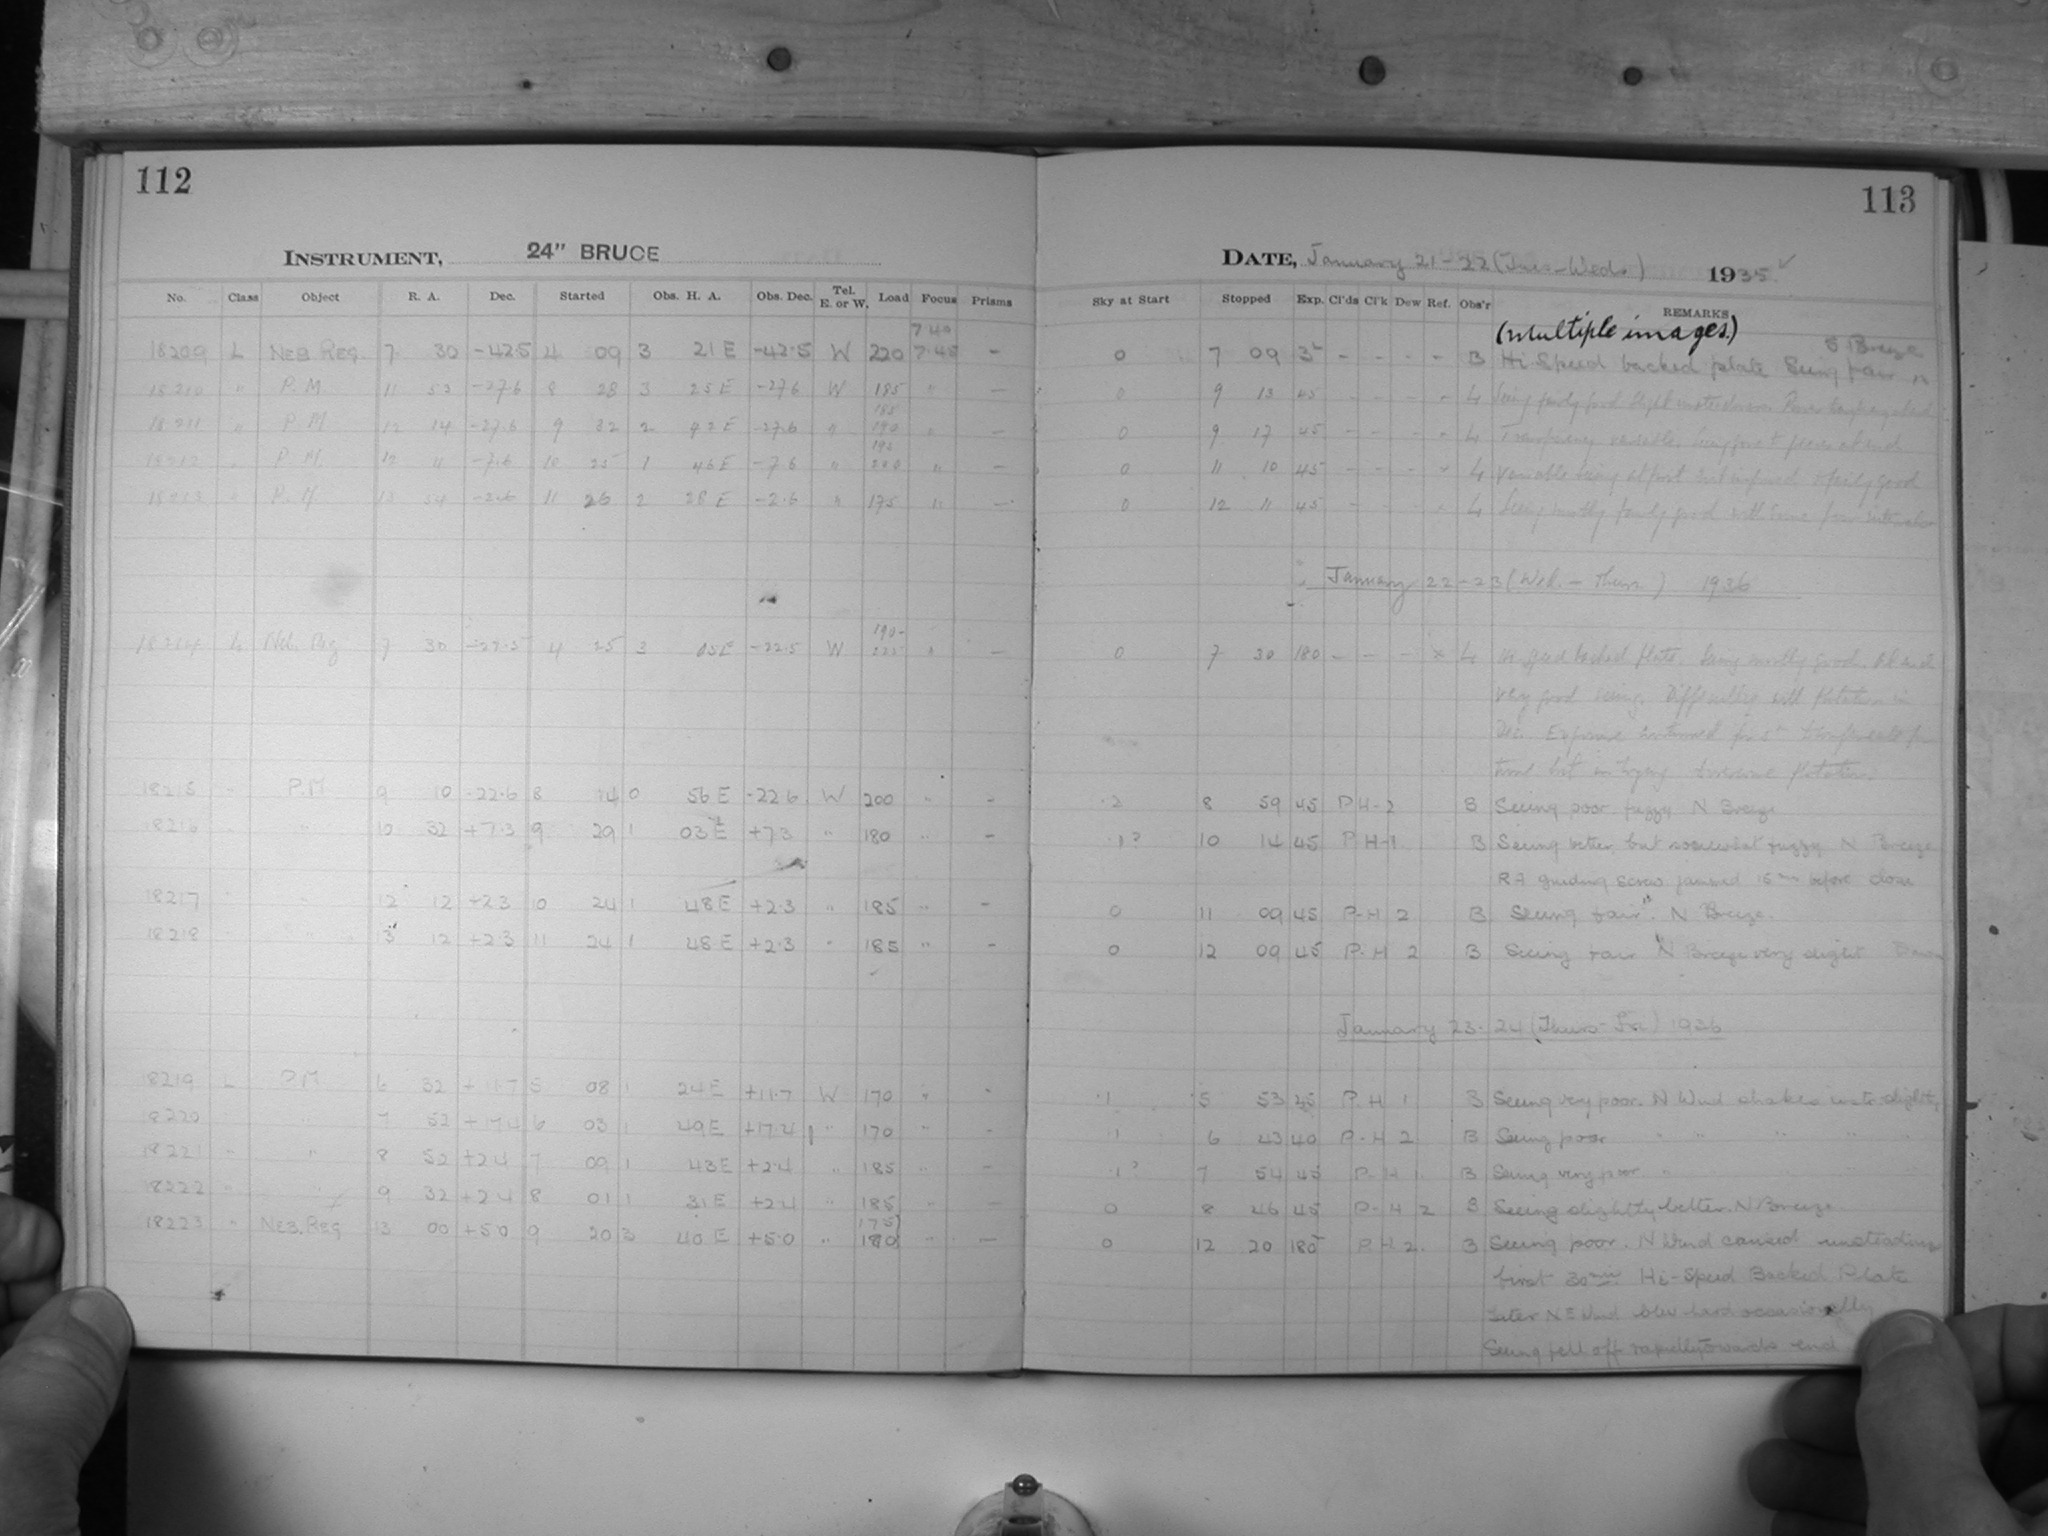 112
INSTRUMENT, 24" BRUCE
No. Class Object R. A. Dec. Started Obs. H. A. Obs. Dec. Tel. E. or W. Load Focus Prisms
7.40
18209 L NEB REG. 7 30 -42.5 4 09 3 21 E -42.5 W 220 7.48 -
18210 " P.M 11 52 -27.6 8 28 3 25 E -27.6 W 185 " -
185
18211 " P.M 12 14 -27.6 9 32 2 42 E -27.6 " 190 " -
195
18212 " P.M. 12 11 -7.6 10 25 1 46 E -7.6 " 200 " -
18213 " P.M 13 54 -2.6 11 26 2 28 E -2.6 " 175 " -
190-
18214 L Neb. Reg 7 30 -22.5 4 25 3 05 E -22.5 W 225 " -
18215 " P.M 9 10 -22.6 8 14 0 56 E -22.6 W 200 " -
18216 " 10 32 +7.3 9 29 1 03 E +7.3 " 180 " -
18217 " 12 12 +2.3 10 24 1 48 E +2.3 " 185 " -
18218 13 12 +2.3 11 24 1 48 E +2.3 " 185 " -
18219 L P.M 6 32 +11.7 5 08 1 24 E +11.7 W 170 " -
18220 " 7 52 +17.4 6 03 1 49 E +17.4 " 170 -
18221 " " 8 52 +2.4 7 09 1 43 E +2.4 " 185 " -
18222 " " 9 32 +2.4 8 01 1 31 E +2.4 " 185 " -
175
18223 " NEB. REG 13 00 +5.0 9 20 3 40 E +5.0 " 180 " -
113
DATE, January 21-22 (Tues-Weds) 1935
Sky at Start Stopped Exp. Cl'ds Cl'k Dew Ref. Obs'r REMARKS
(multiple images.)
S Breeze
0 7 09 3 - - - - B Hi-Speed backed plate Seeing fair
0 9 13 45 - - - - L Seeing fairly good Slight unsteadiness.
0 9 17 45 - - - - L Transparency variable. Seeing poor at end
0 11 10 45 - - - - L Variable seeing at first but improved fairly good
0 12 11 45 - - - - L Seeing mostly fairly good with some poor intervals
January 22-23 (Wed. - Thurs.) 1936
0 7 30 180 - - - x L Hi speed backed plate. Seeing mostly good. At end
very good seeing. Difficulties with Rotation in
Dec. Exposure continued
.2 8 59 45 P H-2 B Seeing poor fuzzy N Breeze
.1? 10 14 45 P H-1 B Seeing better, but somewhat fuzzy N Breeze
RA guiding screw jammed 15m before close
0 11 09 45 P-H 2 B Seeing fair. N Breeze.
0 12 09 45 P-H 2 B Seeing fair N Breeze very slight
January 23-24 (Thurs-Fri) 1936
.1 5 53 45 P.H 1 B Seeing very poor. N Wind shakes inst. slightly
.1 6 43 40 P-H 2 B Seeing poor " " " "
.1? 7 54 45 P-H 1 B Seeing very poor "
0 8 46 45 P-H 2 B Seeing slightly better. N Breeze
0 12 20 180 P H 2. B Seeing poor. N Wind caused unsteadiness
first 30 min Hi-Speed Backed Plate
Later NE Wind blew hard occasionally
Seeing fell off rapidly towards end